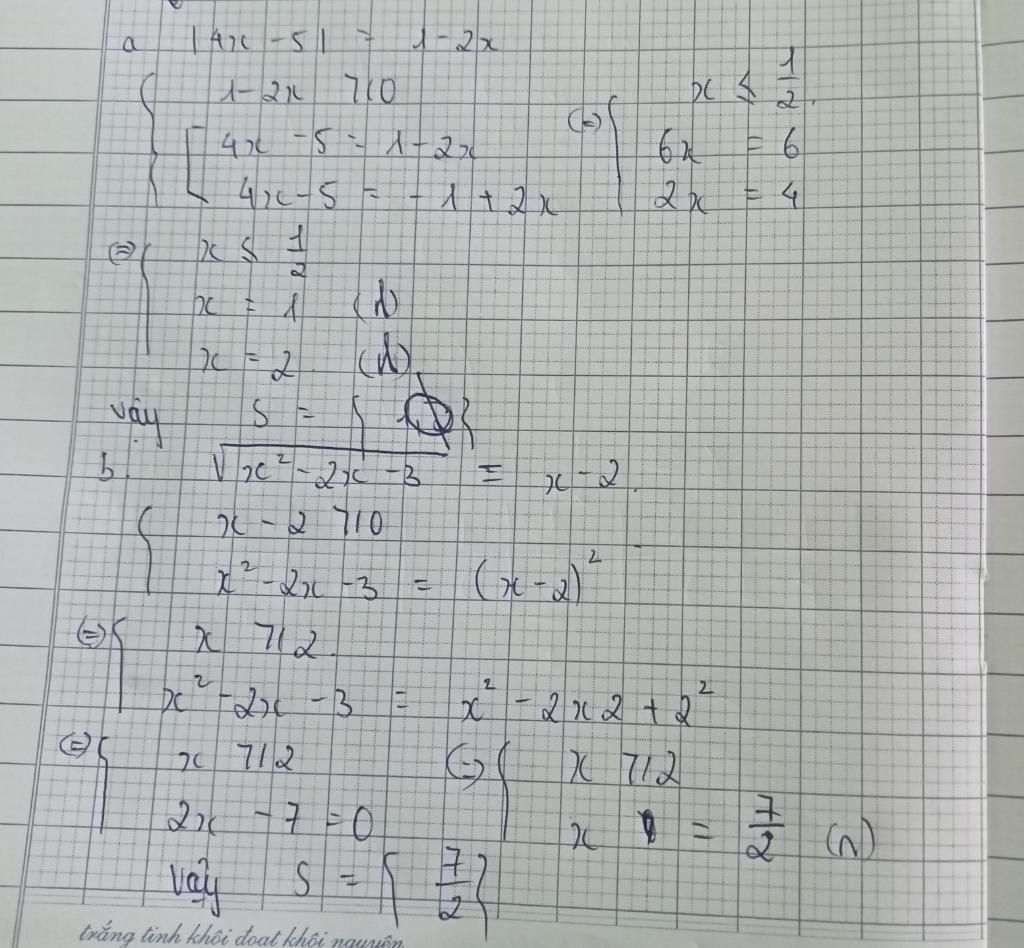 a |4x - 5| = 1 - 2x
1 - 2x ⩾ 0
4x - 5 = 1 - 2x
4x - 5 = - 1 + 2x
(=) x ⩽ 1/2.
6x = 6
2x = 4
(=) x ⩽ 1/2
x = 1 (l)
x = 2. (l)
vậy S = { }
b. √x² - 2x - 3 = x - 2.
x - 2 ⩾ 0
x² - 2x - 3 = (x - 2)²
(=) x ⩾ 2.
x² - 2x - 3 = x² - 2x2 + 2²
(=) x ⩾ 2
2x - 7 = 0
(=) x ⩾ 2
x = 7/2 (n)
Vậy S = { 7/2 }
trắng tinh khôi đoạt khôi nguyên